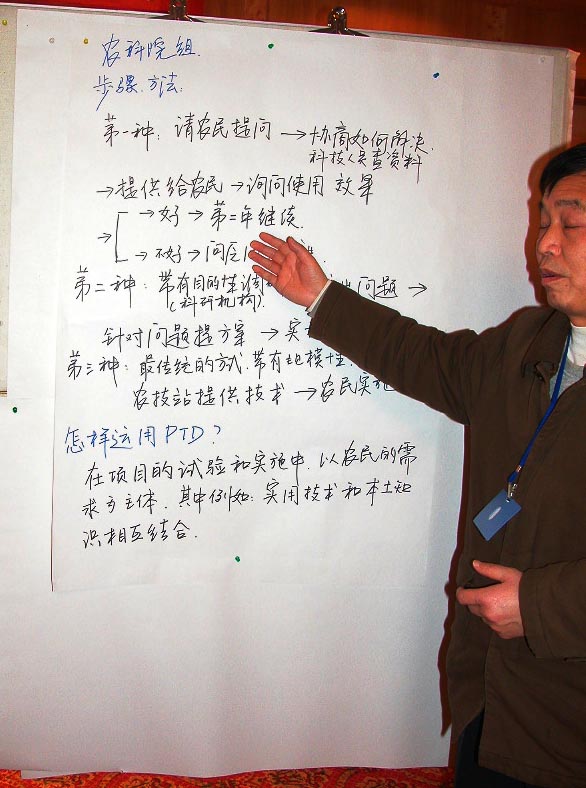 农科院组.
步骤.方法:
第一种: 请农民提问 → 协商如何解决.
科技人员查资料
→ 提供给农民 → 询问使用 效果
→ 好 → 第二年继续.
→ 不好 → 问
第二种: 带有目的 问题 →
(科研机构).
针对问题提方案 → 实
第三种: 最传统的方式.带有
农技站提供技术 → 农民实施
怎样运用PTD?
在项目的试验和实施中.以农民的需
求为主体.其中例如:实用技术和本土知
识相互结合.